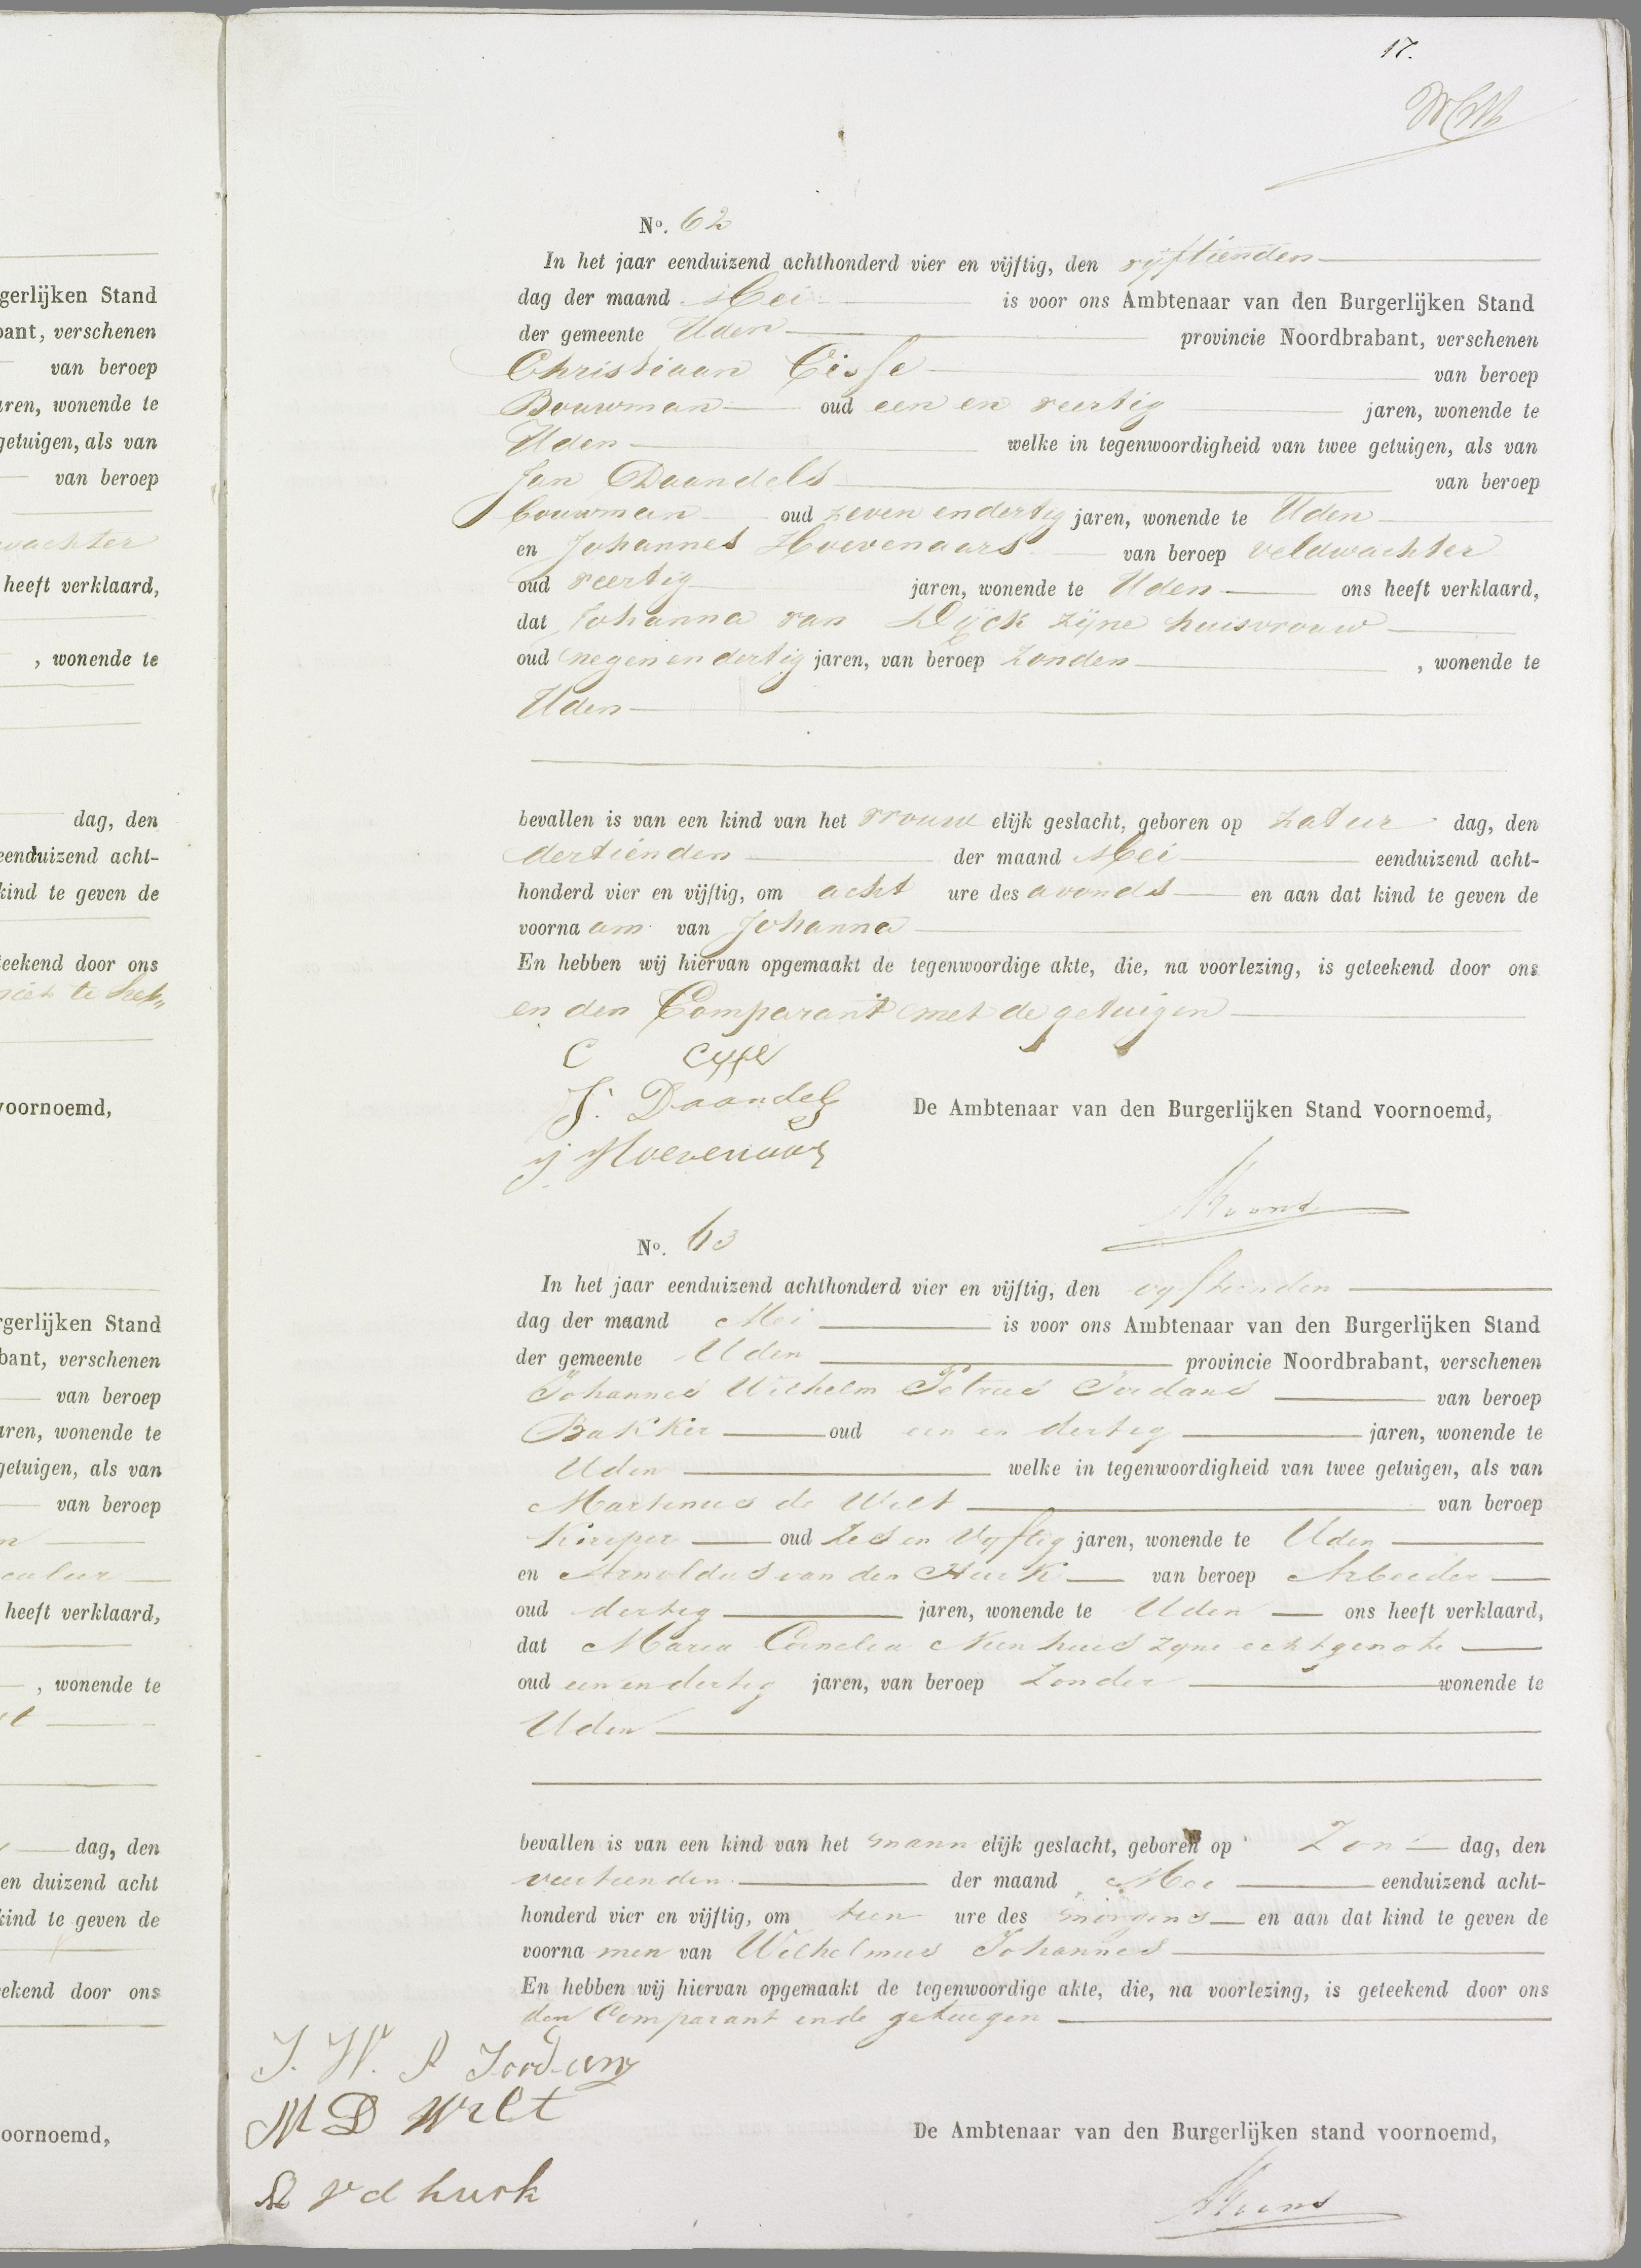 17.
gerlijken Stand
bant, verschenen
van beroep
aren, wonende te
getuigen, als van
van beroep
wachter
heeft verklaard,
, wonende te
dag, den
eenduizend acht-
kind te geven de
teekend door ons
voornoemd,
rgerlijken Stand
bant, verschenen
van beroep
aren, wonende te
getuigen, als van
van beroep
heeft verklaard,
, wonende te
dag, den
en duizend acht
kind te geven de
ekend door ons
oornoemd,
No. 62
In het jaar eenduizend achthonderd vier en vijftig, den vyftienden
dag der maand Mei is voor ons Ambtenaar van den Burgerlijken Stand
der gemeente Uden provincie Noordbrabant, verschenen
Christiaan Cisse van beroep
Bouwman oud een en veertig jaren, wonende te
Uden welke in tegenwoordigheid van twee getuigen, als van
Jan Daandels van beroep
bouwman oud zeven en dertig jaren, wonende te Uden
en Johannes Hoevenaars van beroep veldwachter
oud veertig jaren, wonende te Uden ons heeft verklaard,
dat Johanna van Dijck zijne huisvrouw
oud negen en dertig jaren, van beroep zonder , wonende te
Uden
bevallen is van een kind van het vrouw elijk geslacht, geboren op Zatur dag, den
dertienden der maand Mei eenduizend acht-
honderd vier en vijftig, om acht ure des avonds en aan dat kind te geven de
voorna am van Johanna
En hebben wij hiervan opgemaakt de tegenwoordige akte, die, na voorlezing, is geteekend door ons
en den Comparant met de getuigen
C Cysse
J. Daandels
De Ambtenaar van den Burgerlijken Stand voornoemd,
J Hoevenaars
No. 63
In het jaar eenduizend achthonderd vier en vijftig, den vyftienden
dag der maand Mei is voor ons Ambtenaar van den Burgerlijken Stand
der gemeente Uden provincie Noordbrabant, verschenen
Johannes Wilhelm Petrus Jordans van beroep
Bakker oud een en dertig jaren, wonende te
Uden welke in tegenwoordigheid van twee getuigen, als van
Martinus de Wilt van beroep
Kuiper oud zes en vyftig jaren, wonende te Uden
en Arnoldus van den Hurk van beroep Arbeider
oud dertig jaren, wonende te Uden ons heeft verklaard,
dat Maria Cornelia Nienhuis zyne echtgenote
oud een en dertig jaren, van beroep Zonder wonende te
Uden
bevallen is van een kind van het mann elijk geslacht, geboren op Zon dag, den
veertienden der maand Mei eenduizend acht-
honderd vier en vijftig, om tien ure des morgens en aan dat kind te geven de
voorna men van Wilhelmus Johannes
En hebben wij hiervan opgemaakt de tegenwoordige akte, die, na voorlezing, is geteekend door ons
den Comparant en de getuigen
J. W. P Jordans
M D Wilt
De Ambtenaar van den Burgerlijken stand voornoemd,
A v d hurk